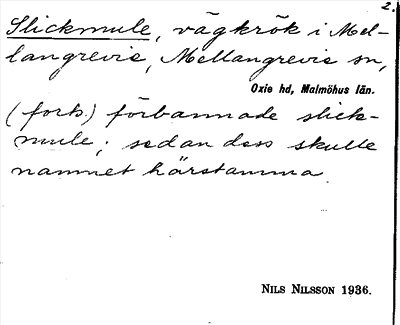 2.
Slickmule, vägkrök i Mel-
langrevie, Mellangrevie sn,
Oxie hd, Malmöhus län.
(forts.) förbannade slick-
mule; sedan dess skulle
namnet härstamma.
NILS NILSSON 1936.